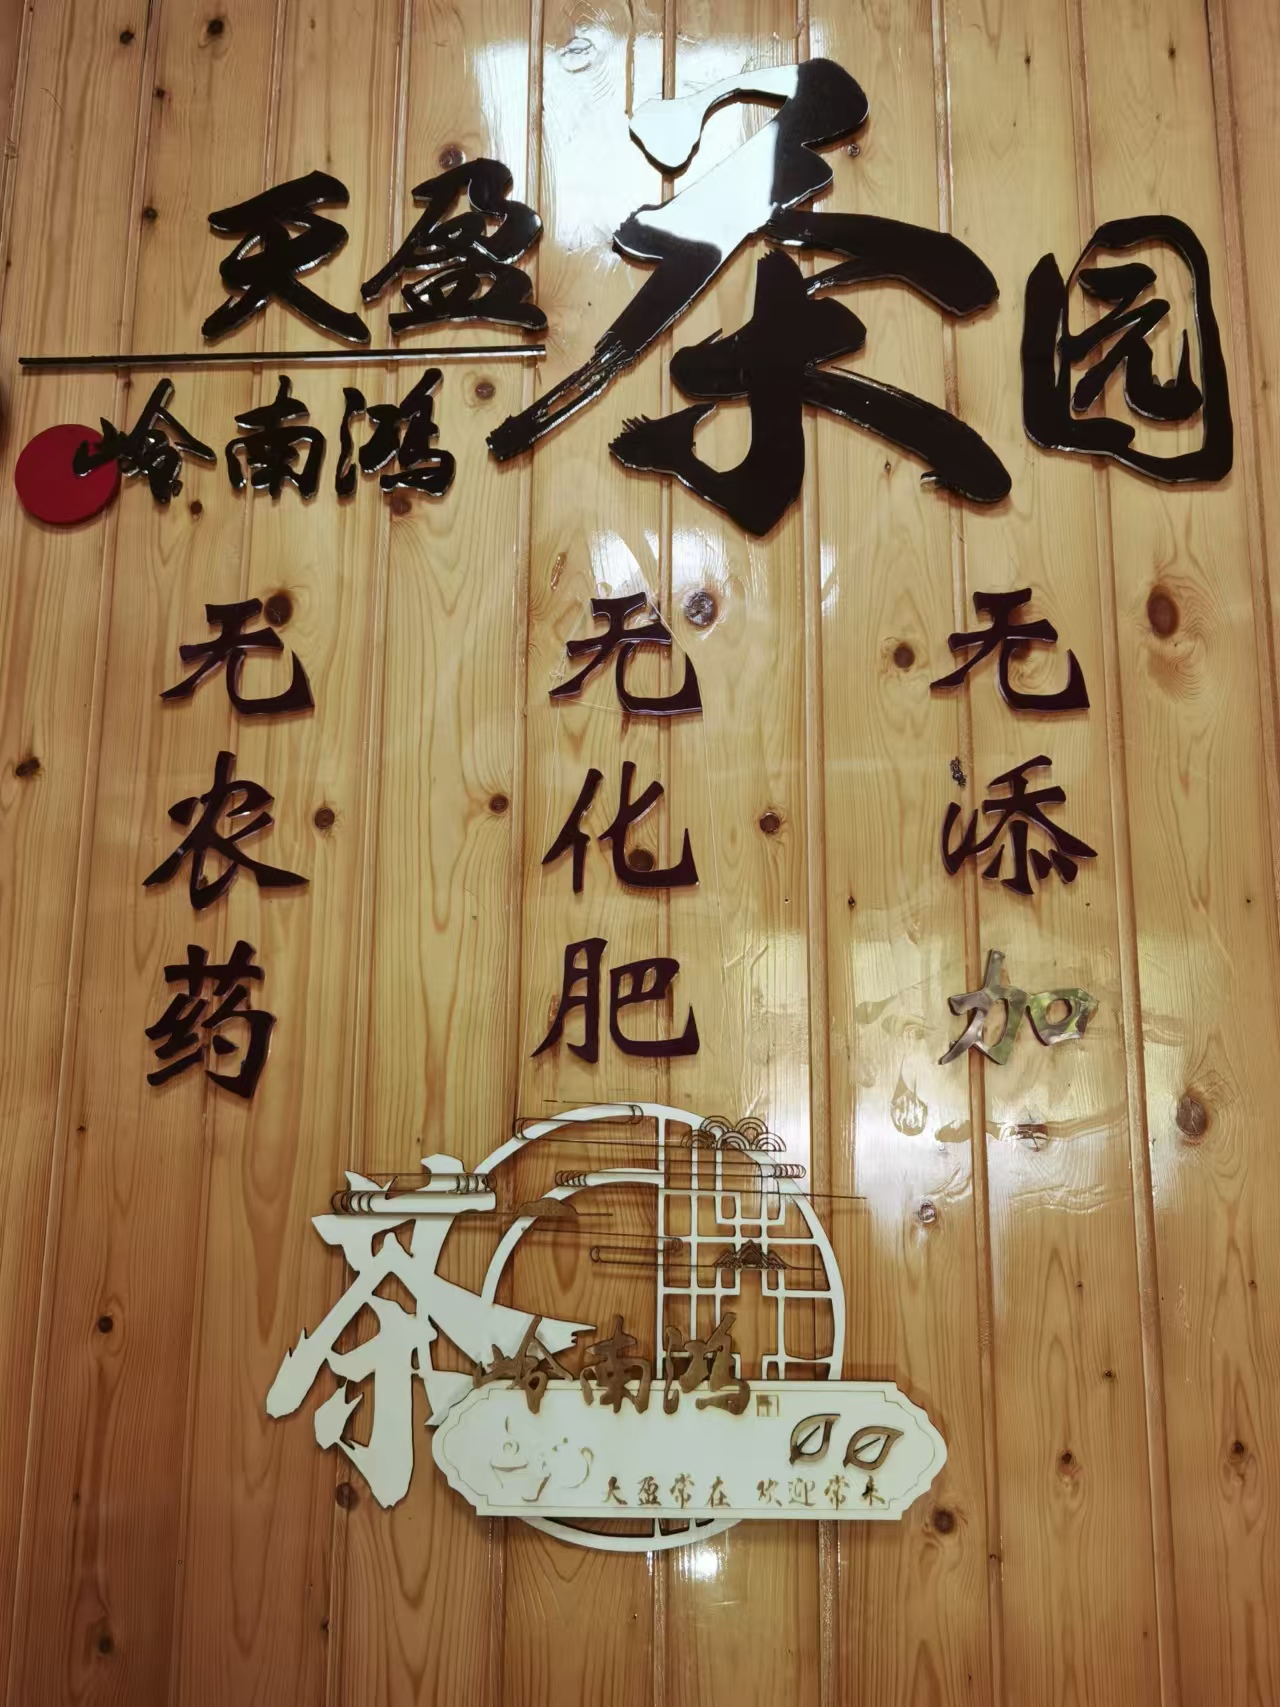 天盈茶园
岭南鸿
无农药
无化肥
无添加
茶
岭南鸿
天盈常在 欢迎常来